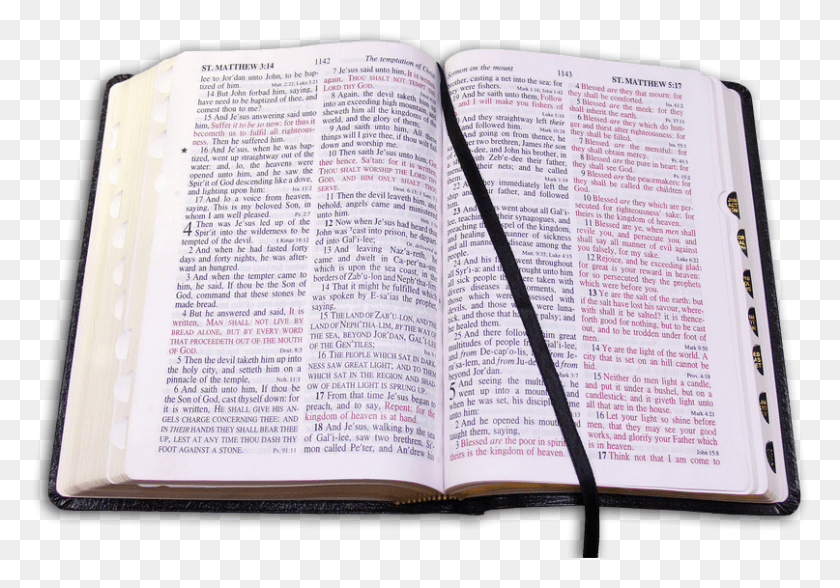 ST. MATTHEW 3:14
1142
The temptation of
lee to Jor'dan unto John, to be bap-
tized of him.
14 But John forbad him, saying, I
have need to be baptized of thee, and
comest thou to me?
15 And Jesus answering said unto
him, Suffer it to be so now: for thus it
becometh us to fulfil all righteous-
ness. Then he suffered him.
16 And Je'sus, when he was bap-
tized, went up straightway out of the
water: and, lo, the heavens were
opened unto him, and he saw the
Spir'it of God descending like a dove,
and lighting upon him:
17 And lo a voice from heaven,
saying, This is my beloved Son, in
whom I am well pleased.
4 Then was Je'sus led up of the
Spir'it into the wilderness to be
tempted of the devil.
2 And when he had fasted forty
days and forty nights, he was after-
ward an hungred.
3 And when the tempter came to
him, he said, If thou be the Son of
God, command that these stones be
made bread.
4 But he answered and said, It is
written, MAN SHALL NOT LIVE BY
BREAD ALONE, BUT BY EVERY WORD
THAT PROCEEDETH OUT OF THE MOUTH
OF GOD.
5 Then the devil taketh him up into
the holy city, and setteth him on a
pinnacle of the temple,
6 And saith unto him, If thou be
the Son of God, cast thyself down: for
it is written, HE SHALL GIVE HIS AN-
GELS CHARGE CONCERNING THEE: AND
IN THEIR HANDS THEY SHALL BEAR THEE
UP, LEST AT ANY TIME THOU DASH THY
FOOT AGAINST A STONE. Ps. 91:11
7 Je'sus said unto him, It is written
again, THOU SHALT NOT TEMPT THE
LORD THY GOD.
8 Again, the devil taketh him up
into an exceeding high mountain, and
sheweth him all the kingdoms of the
world, and the glory of them;
9 And saith unto him, All these
things will I give thee, if thou wilt fall
down and worship me.
10 Then saith Je'sus unto him, Get
thee hence, Sa'tan: for it is written,
THOU SHALT WORSHIP THE LORD THY
GOD, AND HIM ONLY SHALT THOU
SERVE.
11 Then the devil leaveth him, and,
behold, angels came and ministered
unto him.
12 Now when Je'sus had heard that
John was cast into prison, he departed
into Gal'i-lee;
13 And leaving Naz'a-reth, he
came and dwelt in Ca-per'na-um,
which is upon the sea coast, in the
borders of Zab'u-lon and Neph'tha-lim:
14 That it might be fulfilled which
was spoken by E-sa'ias the prophet,
saying,
15 THE LAND OF ZAB'U-LON, AND THE
LAND OF NEPH'THA-LIM, BY THE WAY OF
THE SEA, BEYOND JOR'DAN, GAL'I-LEE
OF THE GEN'TILES;
16 THE PEOPLE WHICH SAT IN DARK-
NESS SAW GREAT LIGHT; AND TO THEM
WHICH SAT IN THE REGION AND SHAD-
OW OF DEATH LIGHT IS SPRUNG UP.
17 From that time Je'sus began to
preach, and to say, Repent: for the
kingdom of heaven is at hand.
18 And Je'sus, walking by the sea
of Gal'i-lee, saw two brethren, Si'-
mon called Pe'ter, and An'drew his
Sermon on the mount
1143
ST. MATTHEW 5:17
brother, casting a net into the sea: for
they were fishers.
19 And he saith unto them, Follow
me, and I will make you fishers of
20 And they straightway left their
21 And going on from thence, he
other two brethren, James the son
and John his brother, in
with Zeb'e-dee their father,
their nets; and he called
22 And they immediately left the
ship and their father, and followed
23 And Je'sus went about all Gal'i-
lee, teaching in their synagogues, and
preaching the gospel of the kingdom,
and healing all manner of sickness
and all manner of disease among the
people.
24 And his fame went throughout
all Syr'i-a: and they brought unto him
all sick people that were taken with
divers diseases and torments, and
those which were possessed with
devils, and those which were luna-
tick, and those that had the palsy; and
he healed them.
25 And there followed him great
multitudes of people from Gal'i-lee,
and from De-cap'o-lis, and from Je-
ru'sa-lem, and from Ju-dæ'a, and from
beyond Jor'dan.
5 And seeing the multitudes, he
went up into a mountain: and
when he was set, his disciples came
unto him:
2 And he opened his mouth, and
taught them, saying,
3 Blessed are the poor in spirit: for
theirs is the kingdom of heaven.
4 Blessed are they that mourn: for
they shall be comforted.
5 Blessed are the meek: for they
shall inherit the earth.
6 Blessed are they which do hun-
ger and thirst after righteousness: for
they shall be filled.
7 Blessed are the merciful: for
they shall obtain mercy.
8 Blessed are the pure in heart: for
they shall see God.
9 Blessed are the peacemakers: for
they shall be called the children of
God.
10 Blessed are they which are per-
secuted for righteousness' sake: for
theirs is the kingdom of heaven.
11 Blessed are ye, when men shall
revile you, and persecute you, and
shall say all manner of evil against
you falsely, for my sake.
12 Rejoice, and be exceeding glad:
for great is your reward in heaven:
for so persecuted they the prophets
which were before you.
13 Ye are the salt of the earth: but
if the salt have lost his savour, where-
with shall it be salted? it is thence-
forth good for nothing, but to be cast
out, and to be trodden under foot of
men. Mark 9:50
14 Ye are the light of the world. A
city that is set on an hill cannot be
hid.
15 Neither do men light a candle,
and put it under a bushel, but on a
candlestick; and it giveth light unto
all that are in the house. Mark 4:21
16 Let your light so shine before
men, that they may see your good
works, and glorify your Father which
is in heaven. John 15:8
17 Think not that I am come to